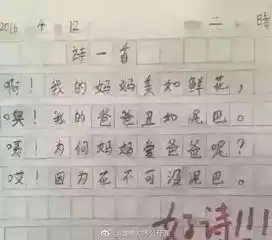 2016 4 12 二、晴
诗一首
啊！我的妈妈美如鲜花，
噢！我的爸爸丑如泥巴。
咦！为何妈妈爱爸爸呢？
哎！因为花不可没泥巴。
好诗!!!